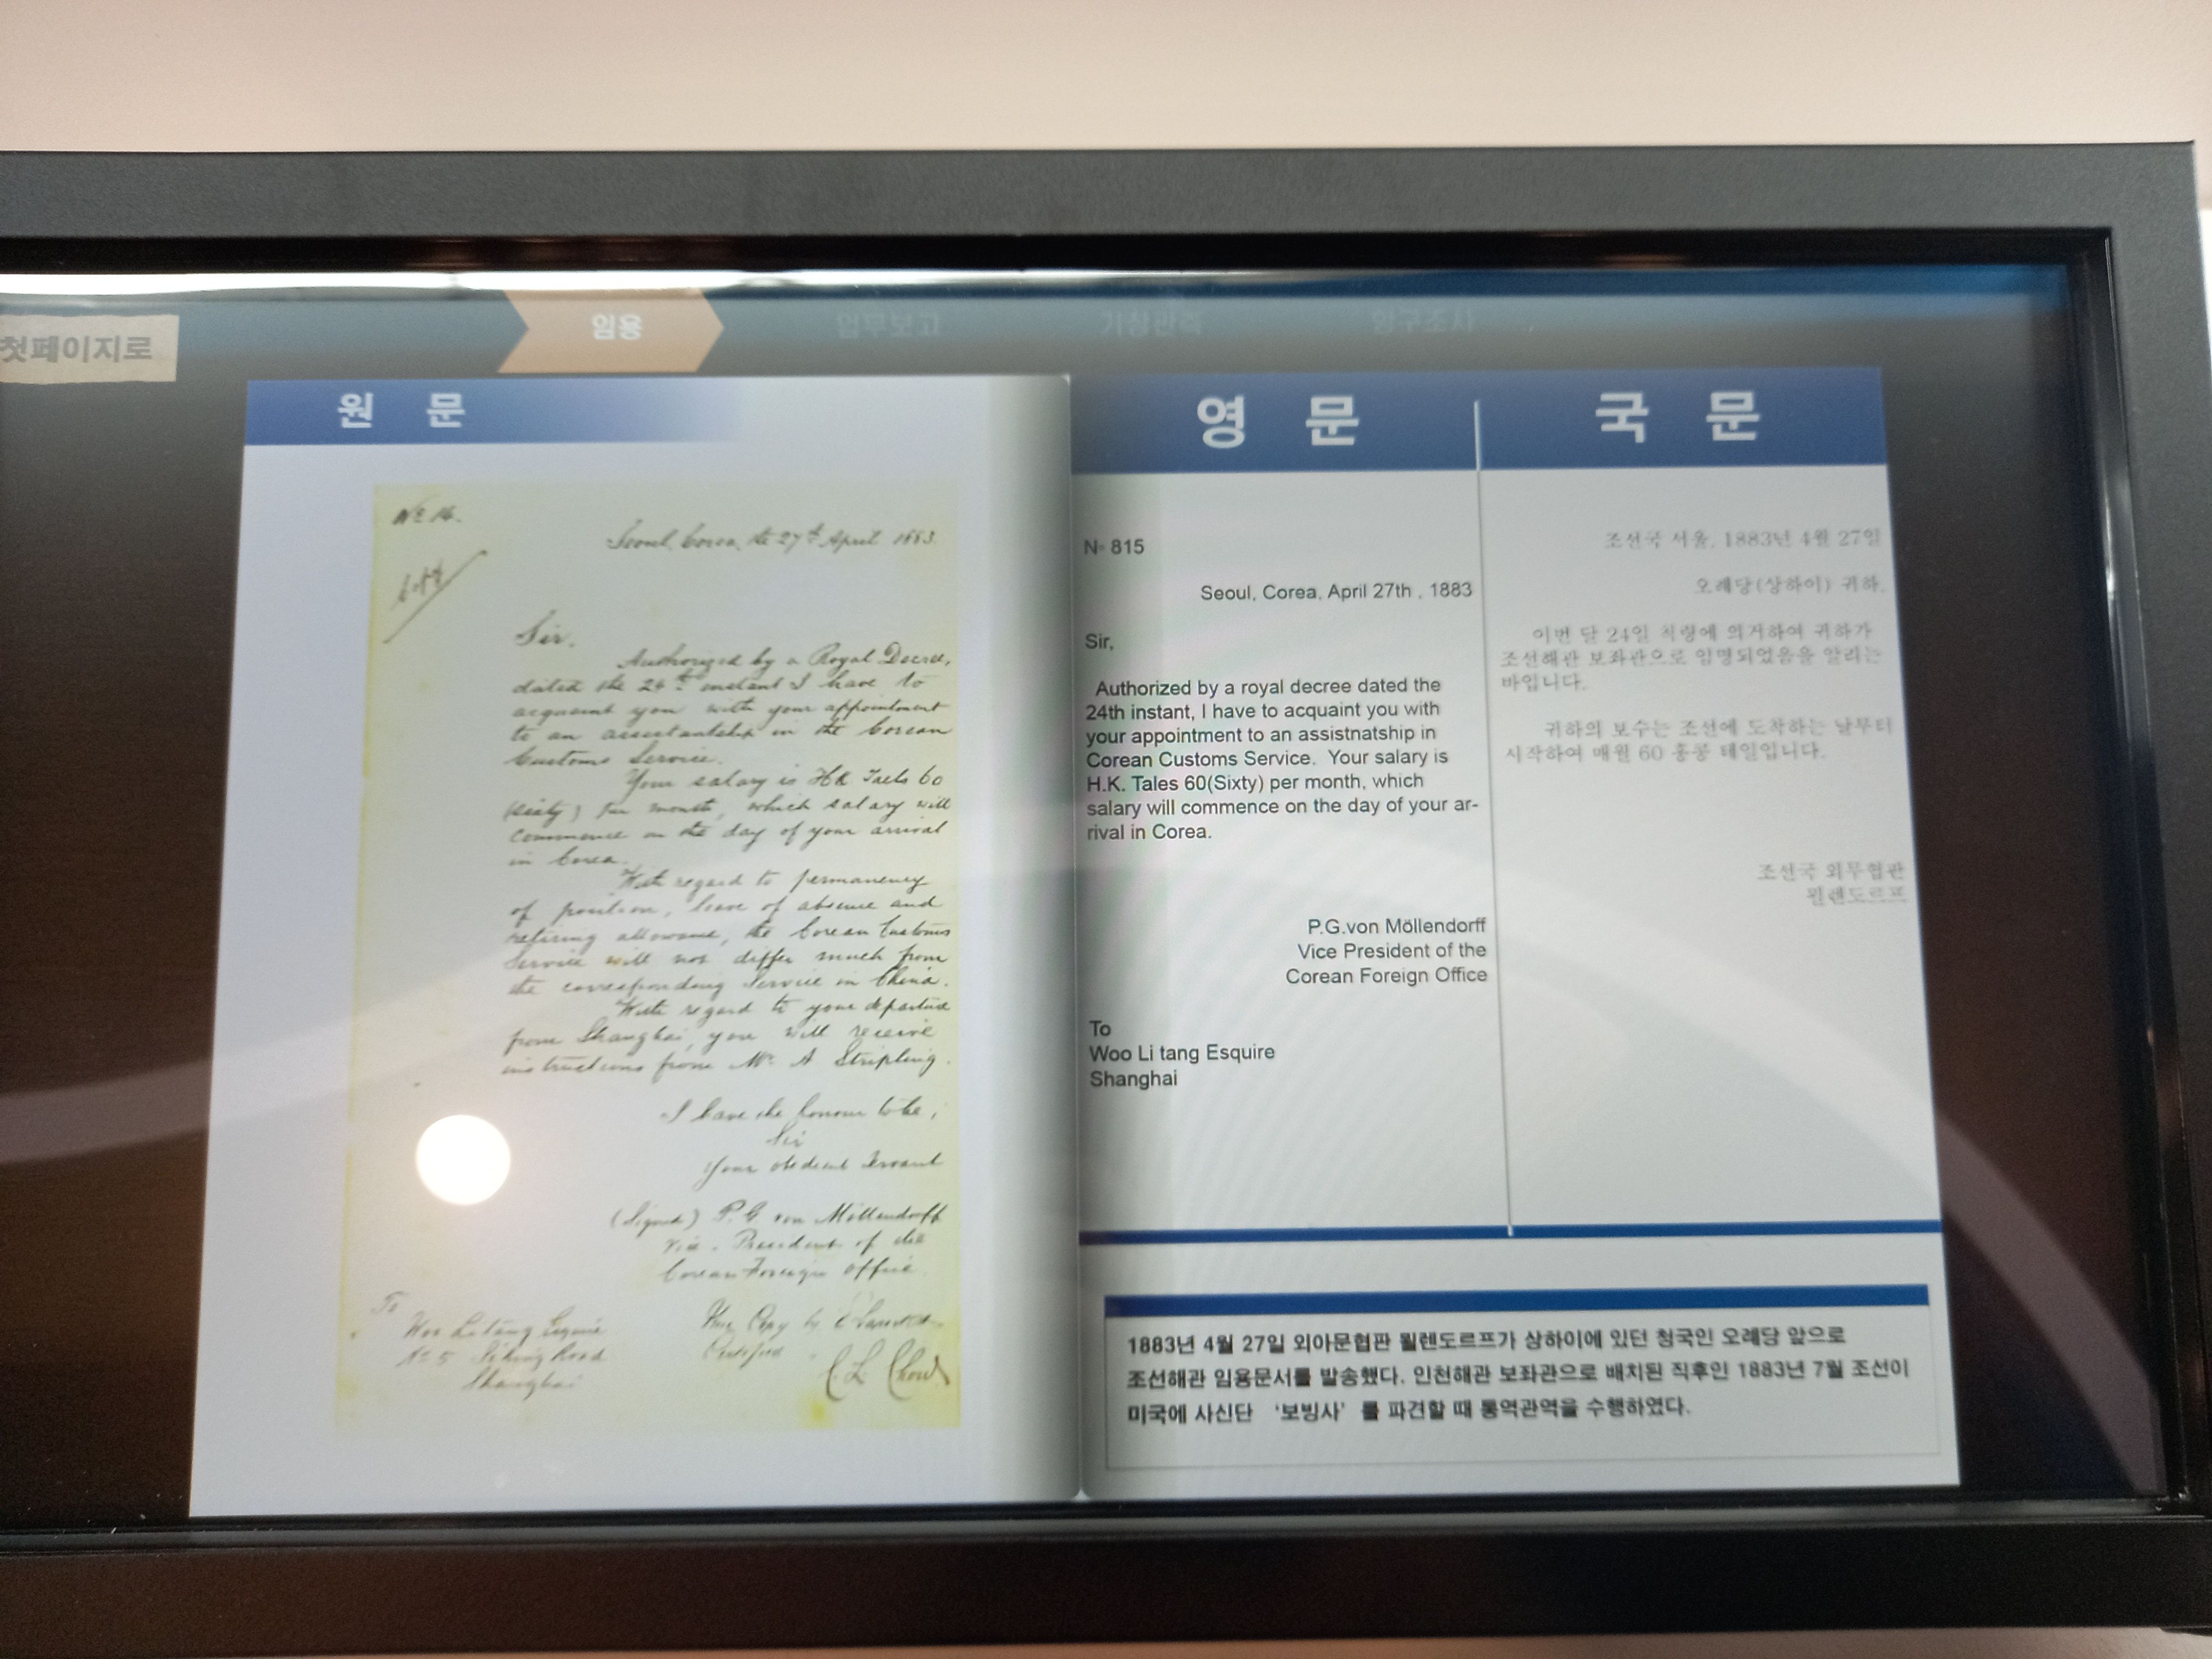 첫페이지로
임용
업무보고
기상관측
항구조사
원 문
No 14.
Seoul, Corea, the 27th April 1883.
Sir.
Authorized by a Royal Decree,
dated the 24th instant I have to
acquaint you with your appointment
to an assistantship in the Corean
Customs Service.
Your salary is HK Taels 60
(sixty) per month, which salary will
commence on the day of your arrival
in Corea.
With regard to permanency
of position, leave of absence and
retiring allowance, the Corean Customs
Service will not differ much from
the corresponding Service in China.
With regard to your departure
from Shanghai, you will receive
instructions from Mr. A Stripling.
I have the honour to be,
Sir
Your obedient Servant
(Signed) P. G. von Möllendorff
Vice. President of the
Corean Foreign Office.
To
Woo Li tang Esquire
No 5 Road
Shanghai
True Copy by
Certified
영 문
No 815
Seoul, Corea, April 27th , 1883
Sir,
Authorized by a royal decree dated the
24th instant, I have to acquaint you with
your appointment to an assistnatship in
Corean Customs Service. Your salary is
H.K. Tales 60(Sixty) per month, which
salary will commence on the day of your ar-
rival in Corea.
P.G.von Möllendorff
Vice President of the
Corean Foreign Office
To
Woo Li tang Esquire
Shanghai
국 문
조선국 서울, 1883년 4월 27일
오례당(상하이) 귀하.
이번 달 24일 칙령에 의거하여 귀하가
조선해관 보좌관으로 임명되었음을 알리는
바입니다.
귀하의 보수는 조선에 도착하는 날부터
시작하여 매월 60 홍콩 테일입니다.
조선국 외무협판
묄렌도르프
1883년 4월 27일 외아문협판 묄렌도르프가 상하이에 있던 청국인 오례당 앞으로
조선해관 임용문서를 발송했다. 인천해관 보좌관으로 배치된 직후인 1883년 7월 조선이
미국에 사신단 ‘보빙사’ 를 파견할 때 통역관역을 수행하였다.